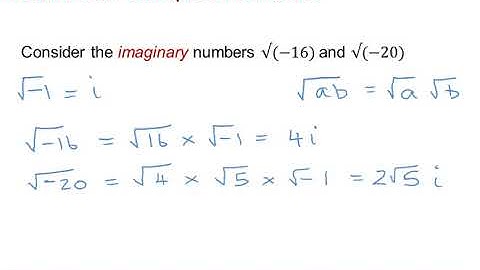 Consider the imaginary numbers √(−16) and √(−20)
√-1 = i √ab = √a √b
√-16 = √16 × √-1 = 4i
√-20 = √4 × √5 × √-1 = 2√5 i